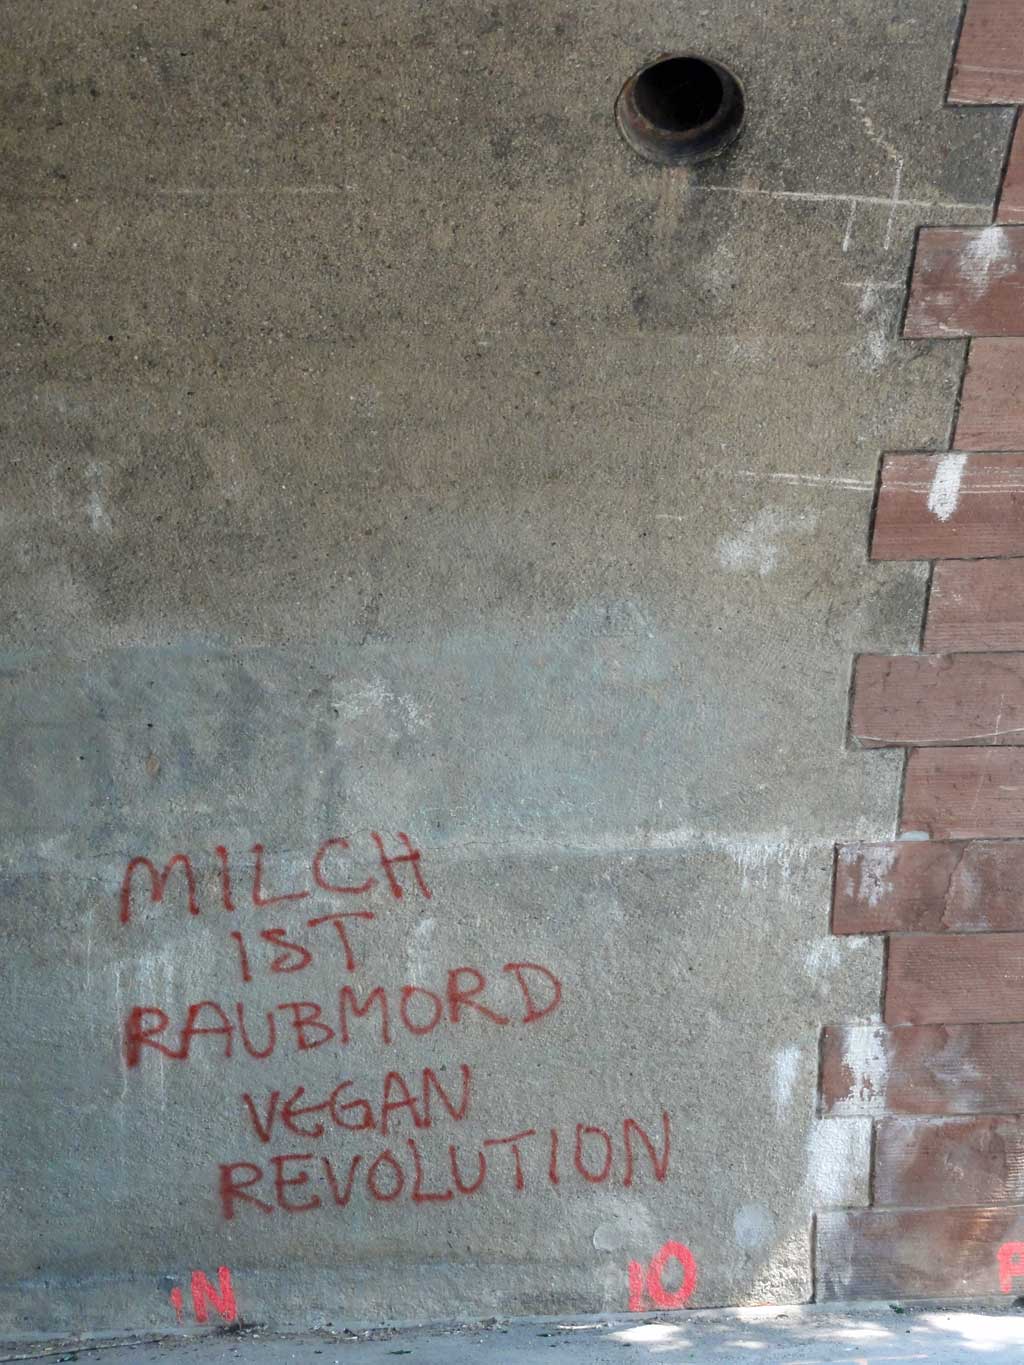 MILCH
IST
RAUBMORD
VEGAN
REVOLUTION
iN 10 P